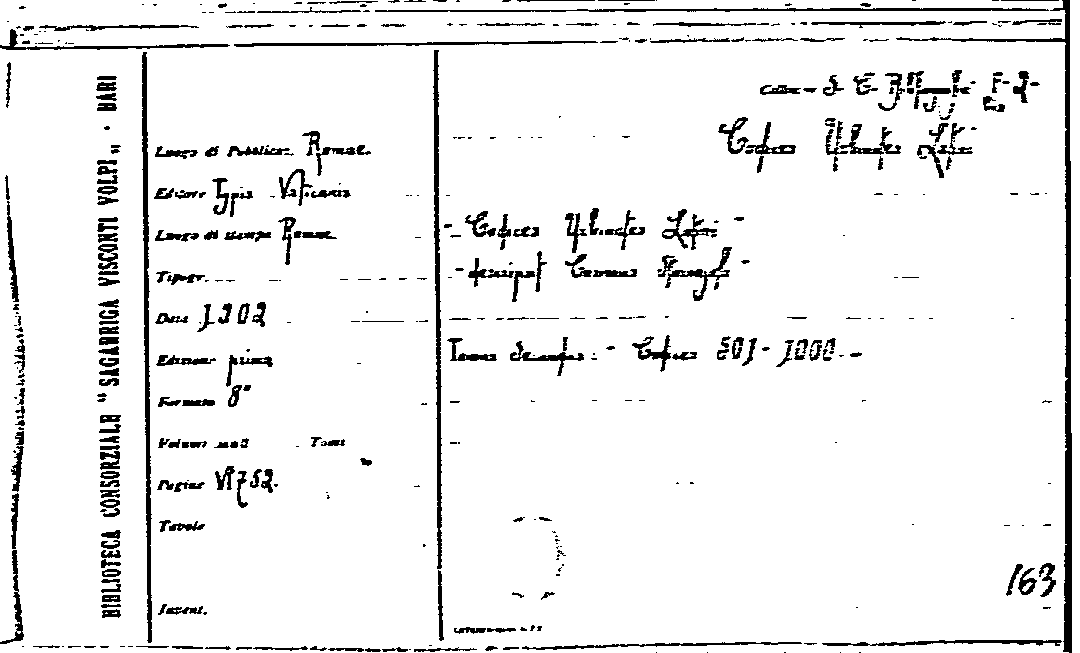 BIBLIOTECA CONSORZIALE "SAGARRIGA VISCONTI VOLPI" - BARI
Codices Urbinates Latini
Luogo di Pubblicaz. Romae
Editore Typis Vaticanis
Luogo di stampa Romae
Tipogr.
Data 1902
Edizione prima
Formato 8°
Volumi Tomi
Pagine VI 752.
Tavole
Invent.
- Codices Urbinates Latini -
- descripsit Cosimus Stornajolo -
Tomus - Codices 501 - 1000 -
163